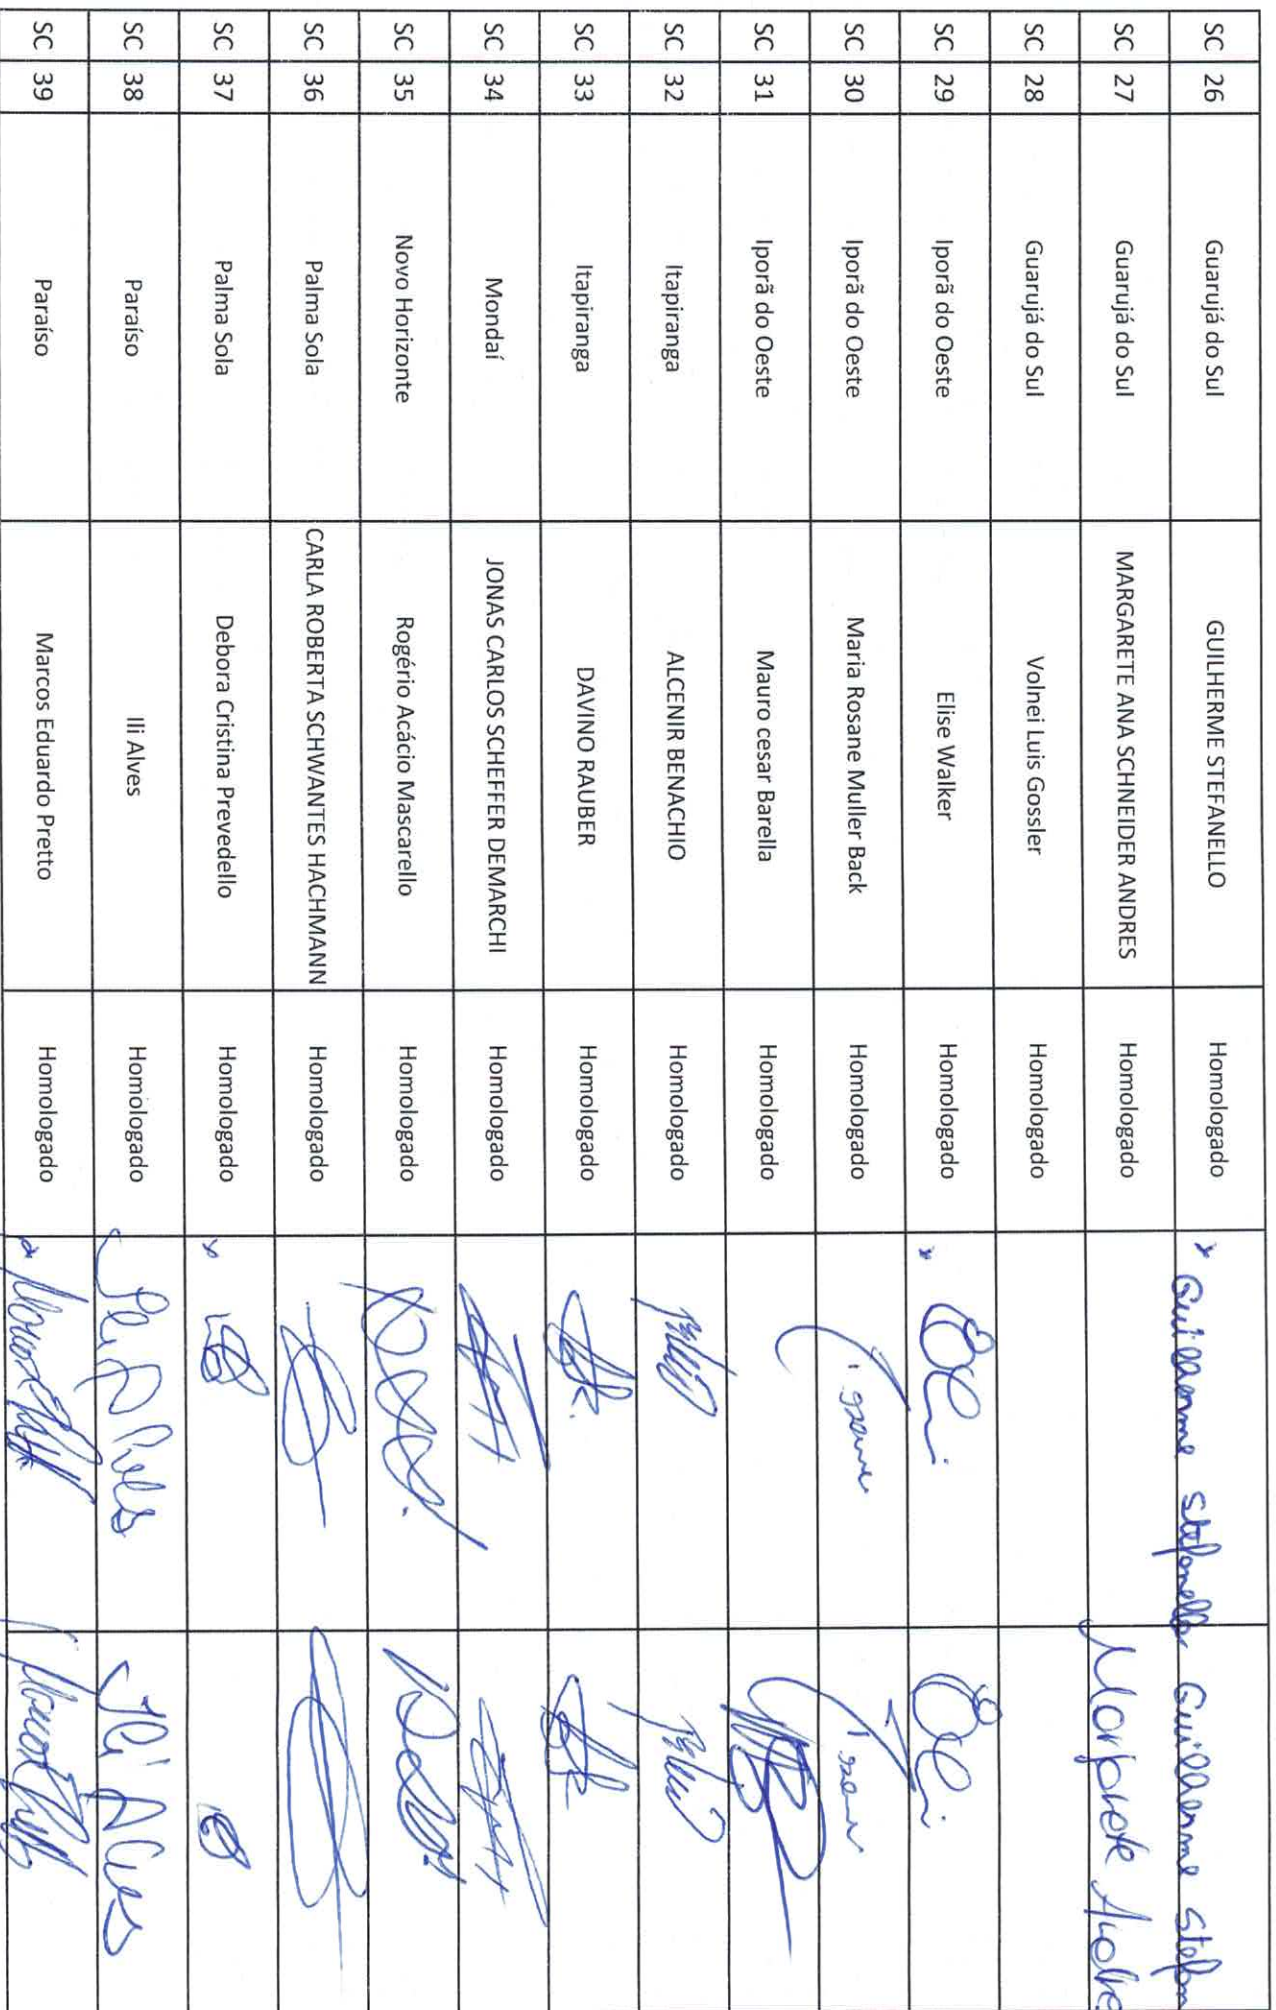 SC 26 Guarujá do Sul GUILHERME STEFANELLO Homologado x Guilherme Stefanello Guilherme Stefan
SC 27 Guarujá do Sul MARGARETE ANA SCHNEIDER ANDRES Homologado Margarete
SC 28 Guarujá do Sul Volnei Luis Gossler Homologado
SC 29 Iporã do Oeste Elise Walker Homologado x
SC 30 Iporã do Oeste Maria Rosane Muller Back Homologado
SC 31 Iporã do Oeste Mauro cesar Barella Homologado
SC 32 Itapiranga ALCENIR BENACHIO Homologado
SC 33 Itapiranga DAVINO RAUBER Homologado
SC 34 Mondaí JONAS CARLOS SCHEFFER DEMARCHI Homologado
SC 35 Novo Horizonte Rogério Acácio Mascarello Homologado
SC 36 Palma Sola CARLA ROBERTA SCHWANTES HACHMANN Homologado
SC 37 Palma Sola Debora Cristina Prevedello Homologado x
SC 38 Paraíso Ili Alves Homologado Ili Alves Ili Alves
SC 39 Paraíso Marcos Eduardo Pretto Homologado x